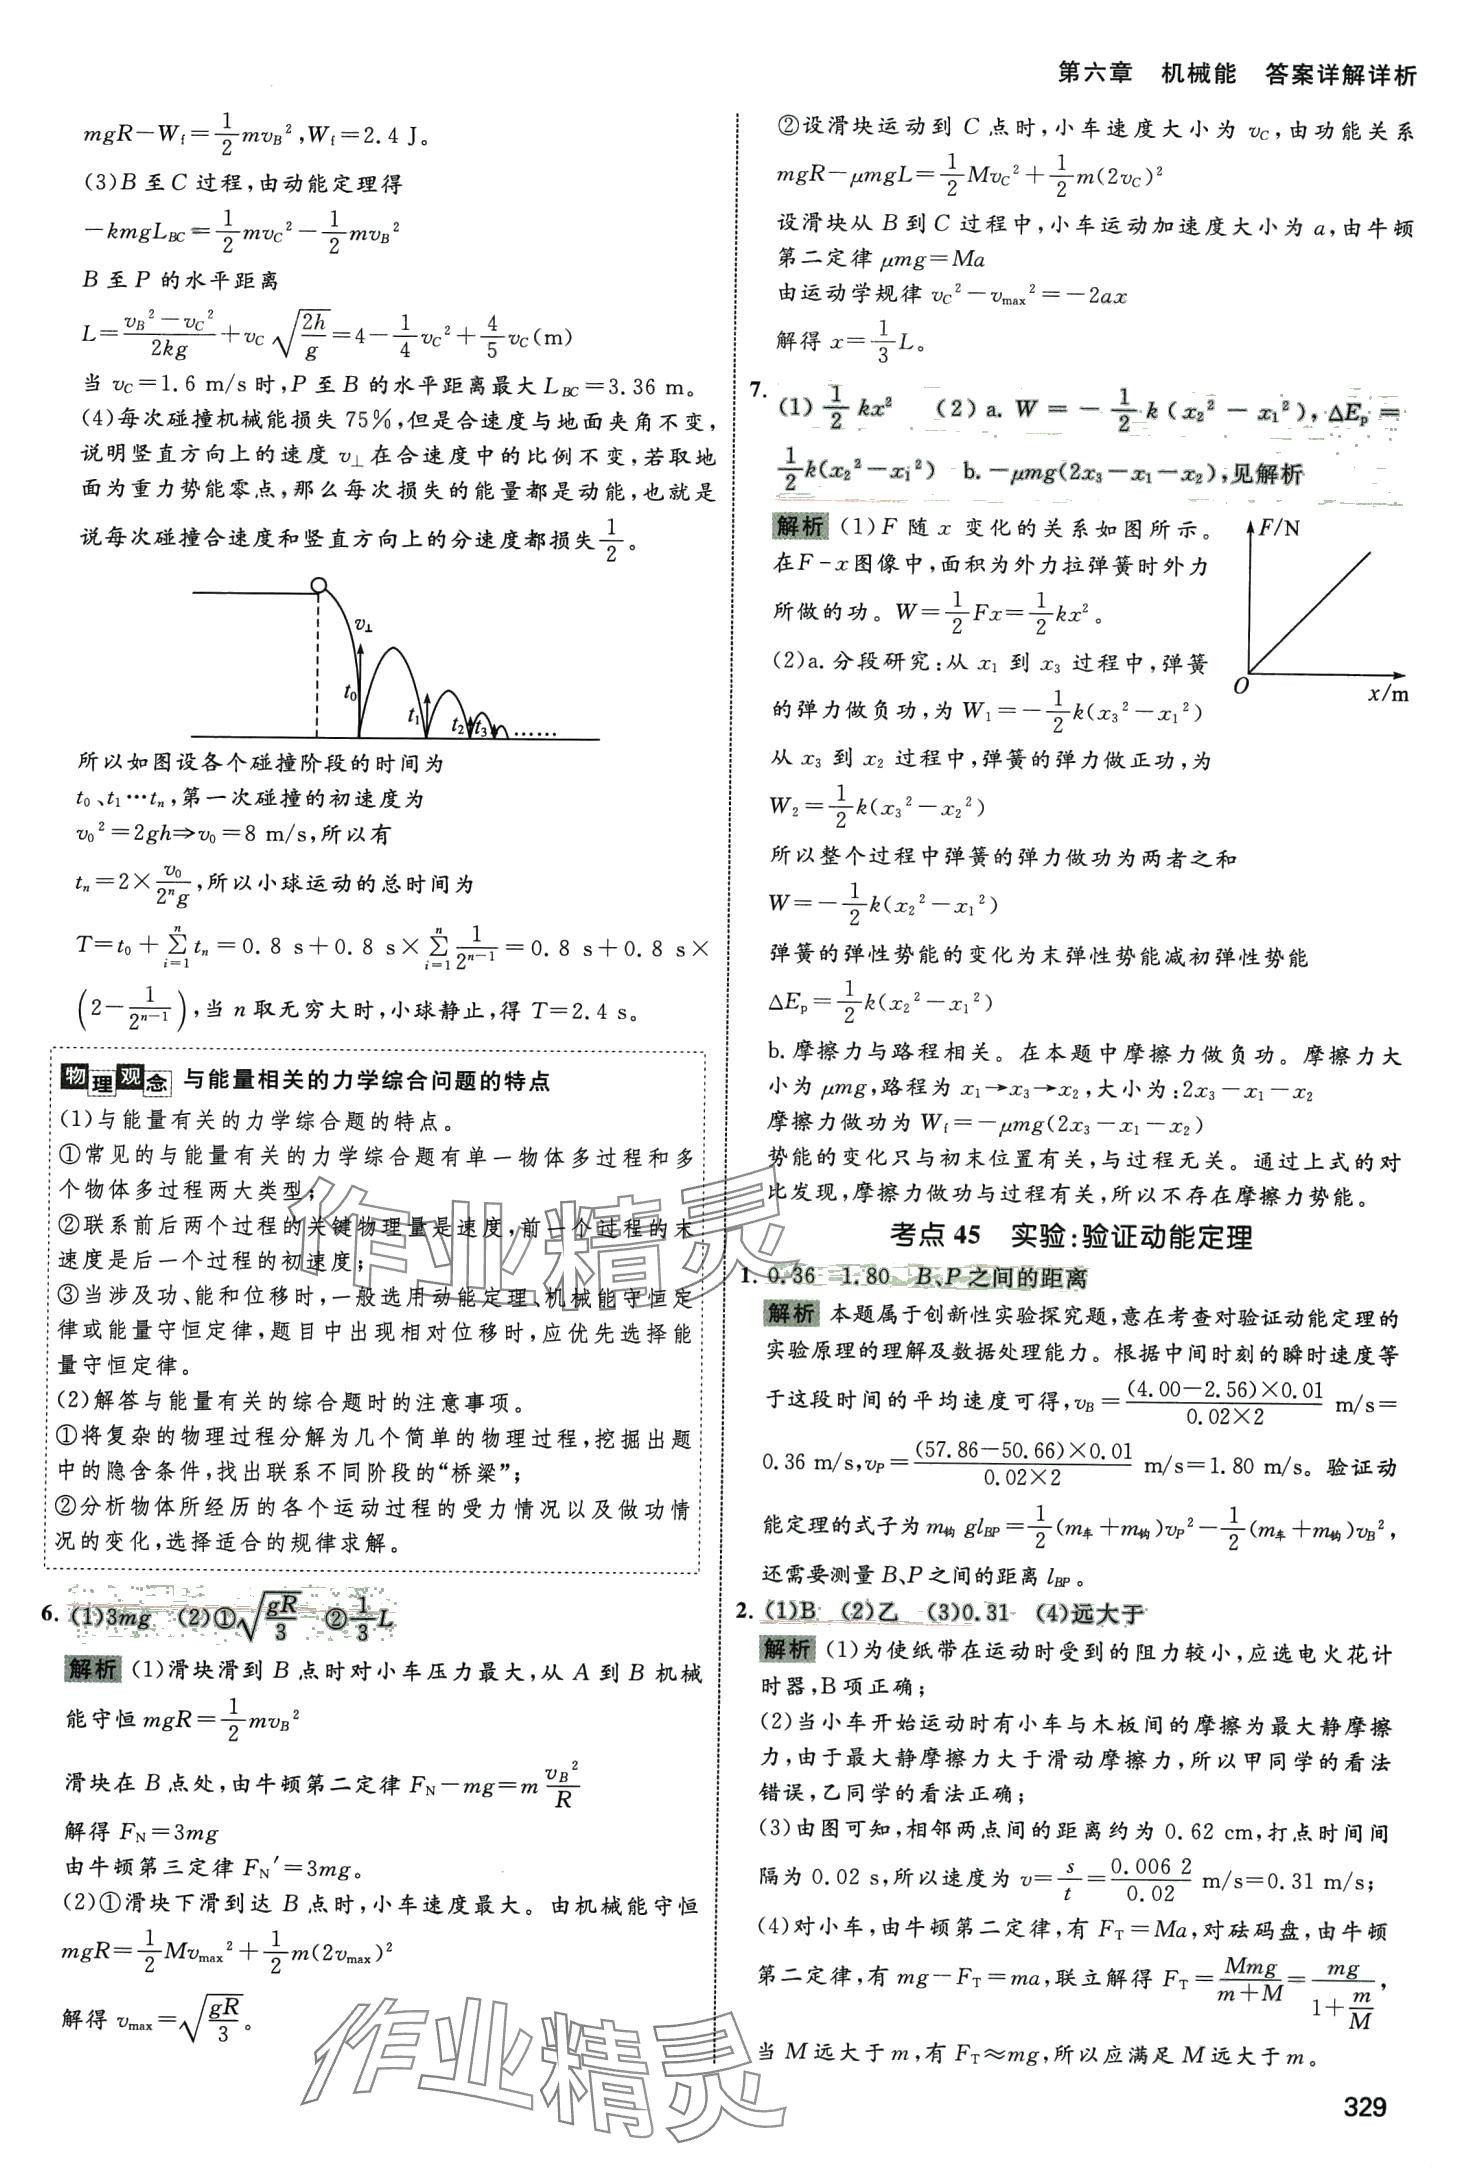 第六章　机械能　答案详解详析
mgR－W_f＝1/2 mv_B²，W_f＝2.4 J。
(3)B 至 C 过程，由动能定理得
－kmgL_BC＝1/2 mv_C²－1/2 mv_B²
B 至 P 的水平距离
L＝(v_B²－v_C²)/(2kg)＋v_C √(2h/g)＝4－1/4 v_C²＋4/5 v_C(m)
当 v_C＝1.6 m/s 时，P 至 B 的水平距离最大 L_BC＝3.36 m。
(4)每次碰撞机械能损失 75%，但是合速度与地面夹角不变，
说明竖直方向上的速度 v⊥ 在合速度中的比例不变，若取地
面为重力势能零点，那么每次损失的能量都是动能，也就是
说每次碰撞合速度和竖直方向上的分速度都损失 1/2。
v⊥
t₀ t₁ t₂ t₃ ……
所以如图设各个碰撞阶段的时间为
t₀、t₁…t_n，第一次碰撞的初速度为
v₀²＝2gh⇒v₀＝8 m/s，所以有
t_n＝2×v₀/(2ⁿg)，所以小球运动的总时间为
T＝t₀＋∑(i=1→n) t_n＝0.8 s＋0.8 s×∑(i=1→n) 1/2ⁿ⁻¹＝0.8 s＋0.8 s×
(2－1/2ⁿ⁻¹)，当 n 取无穷大时，小球静止，得 T＝2.4 s。
物理观念 与能量相关的力学综合问题的特点
(1)与能量有关的力学综合题的特点。
①常见的与能量有关的力学综合题有单一物体多过程和多
个物体多过程两大类型；
②联系前后两个过程的关键物理量是速度，前一个过程的末
速度是后一个过程的初速度；
③当涉及功、能和位移时，一般选用动能定理、机械能守恒定
律或能量守恒定律，题目中出现相对位移时，应优先选择能
量守恒定律。
(2)解答与能量有关的综合题时的注意事项。
①将复杂的物理过程分解为几个简单的物理过程，挖掘出题
中的隐含条件，找出联系不同阶段的“桥梁”；
②分析物体所经历的各个运动过程的受力情况以及做功情
况的变化，选择适合的规律求解。
6. (1)3mg　(2)①√(gR/3)　②1/3 L
解析 (1)滑块滑到 B 点时对小车压力最大，从 A 到 B 机械
能守恒 mgR＝1/2 mv_B²
滑块在 B 点处，由牛顿第二定律 F_N－mg＝m v_B²/R
解得 F_N＝3mg
由牛顿第三定律 F_N′＝3mg。
(2)①滑块下滑到达 B 点时，小车速度最大。由机械能守恒
mgR＝1/2 Mv_max²＋1/2 m(2v_max)²
解得 v_max＝√(gR/3)。
②设滑块运动到 C 点时，小车速度大小为 v_C，由功能关系
mgR－μmgL＝1/2 Mv_C²＋1/2 m(2v_C)²
设滑块从 B 到 C 过程中，小车运动加速度大小为 a，由牛顿
第二定律 μmg＝Ma
由运动学规律 v_C²－v_max²＝－2ax
解得 x＝1/3 L。
7. (1)1/2 kx²　(2)a. W＝－1/2 k(x₂²－x₁²)，ΔE_p＝
1/2 k(x₂²－x₁²)　b. －μmg(2x₃－x₁－x₂)，见解析
解析 (1)F 随 x 变化的关系如图所示。
在F-x图像中，面积为外力拉弹簧时外力
所做的功。W＝1/2 Fx＝1/2 kx²。
F/N
O
x/m
(2)a.分段研究：从 x₁ 到 x₃ 过程中，弹簧
的弹力做负功，为 W₁＝－1/2 k(x₃²－x₁²)
从 x₃ 到 x₂ 过程中，弹簧的弹力做正功，为
W₂＝1/2 k(x₃²－x₂²)
所以整个过程中弹簧的弹力做功为两者之和
W＝－1/2 k(x₂²－x₁²)
弹簧的弹性势能的变化为末弹性势能减初弹性势能
ΔE_p＝1/2 k(x₂²－x₁²)
b.摩擦力与路程相关。在本题中摩擦力做负功。摩擦力大
小为 μmg，路程为 x₁→x₃→x₂，大小为：2x₃－x₁－x₂
摩擦力做功为 W_f＝－μmg(2x₃－x₁－x₂)
势能的变化只与初末位置有关，与过程无关。通过上式的对
比发现，摩擦力做功与过程有关，所以不存在摩擦力势能。
考点 45　实验：验证动能定理
1. 0.36　1.80　B、P 之间的距离
解析 本题属于创新性实验探究题，意在考查对验证动能定理的
实验原理的理解及数据处理能力。根据中间时刻的瞬时速度等
于这段时间的平均速度可得，v_B＝(4.00－2.56)×0.01/(0.02×2) m/s＝
0.36 m/s，v_P＝(57.86－50.66)×0.01/(0.02×2) m/s＝1.80 m/s。验证动
能定理的式子为 m_钩 gl_BP＝1/2 (m_车＋m_钩)v_P²－1/2 (m_车＋m_钩)v_B²，
还需要测量 B、P 之间的距离 l_BP。
2. (1)B　(2)乙　(3)0.31　(4)远大于
解析 (1)为使纸带在运动时受到的阻力较小，应选电火花计
时器，B 项正确；
(2)当小车开始运动时有小车与木板间的摩擦为最大静摩擦
力，由于最大静摩擦力大于滑动摩擦力，所以甲同学的看法
错误，乙同学的看法正确；
(3)由图可知，相邻两点间的距离约为 0.62 cm，打点时间间
隔为 0.02 s，所以速度为 v＝s/t＝0.006 2/0.02 m/s＝0.31 m/s；
(4)对小车，由牛顿第二定律，有 F_T＝Ma，对砝码盘，由牛顿
第二定律，有 mg－F_T＝ma，联立解得 F_T＝Mmg/(m＋M)＝mg/(1＋m/M)，
当 M 远大于 m，有 F_T≈mg，所以应满足 M 远大于 m。
329
作业精灵
作业精灵